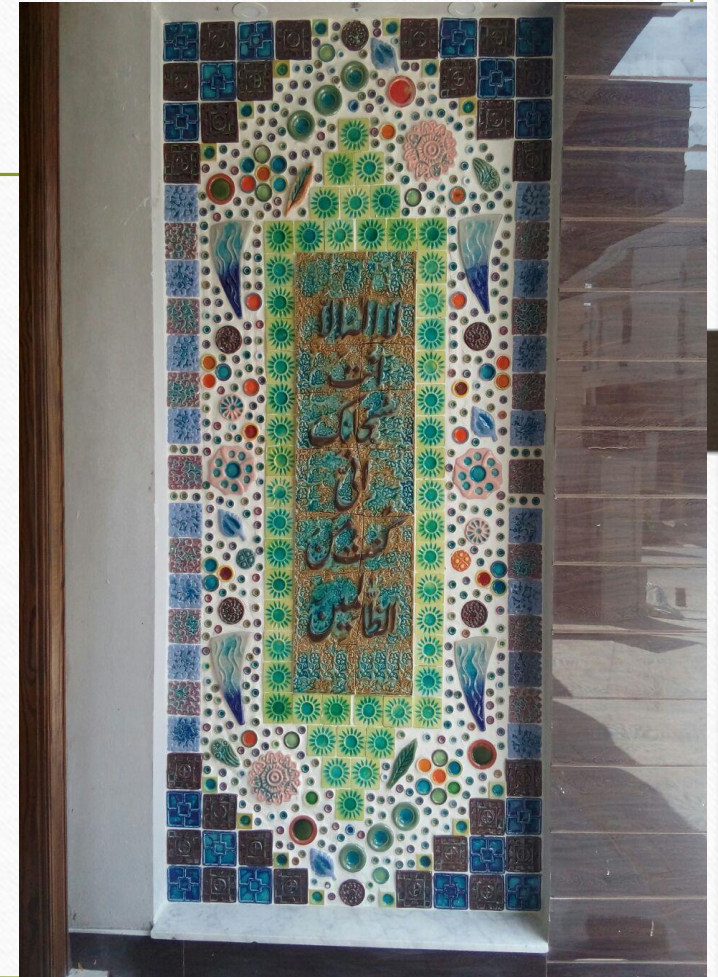 لا اله الا
انت
سبحانک
انی
کنت من
الظالمین